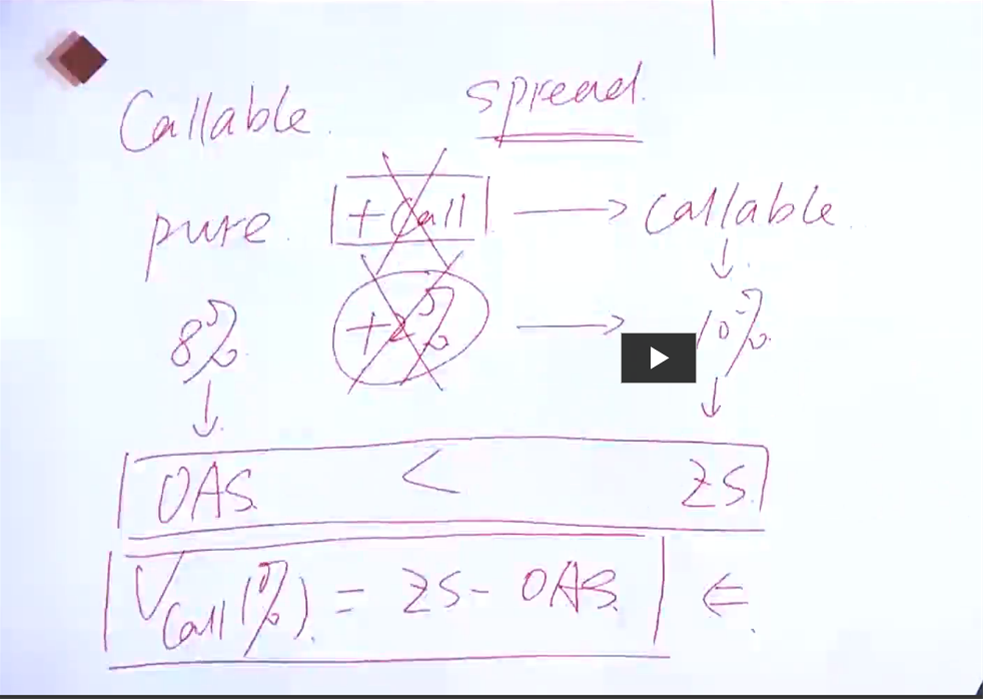 Callable. spread.
pure. +Call → callable.
8% +2% → 10%
OAS. < ZS.
V Call (%). = ZS - OAS. ⇐